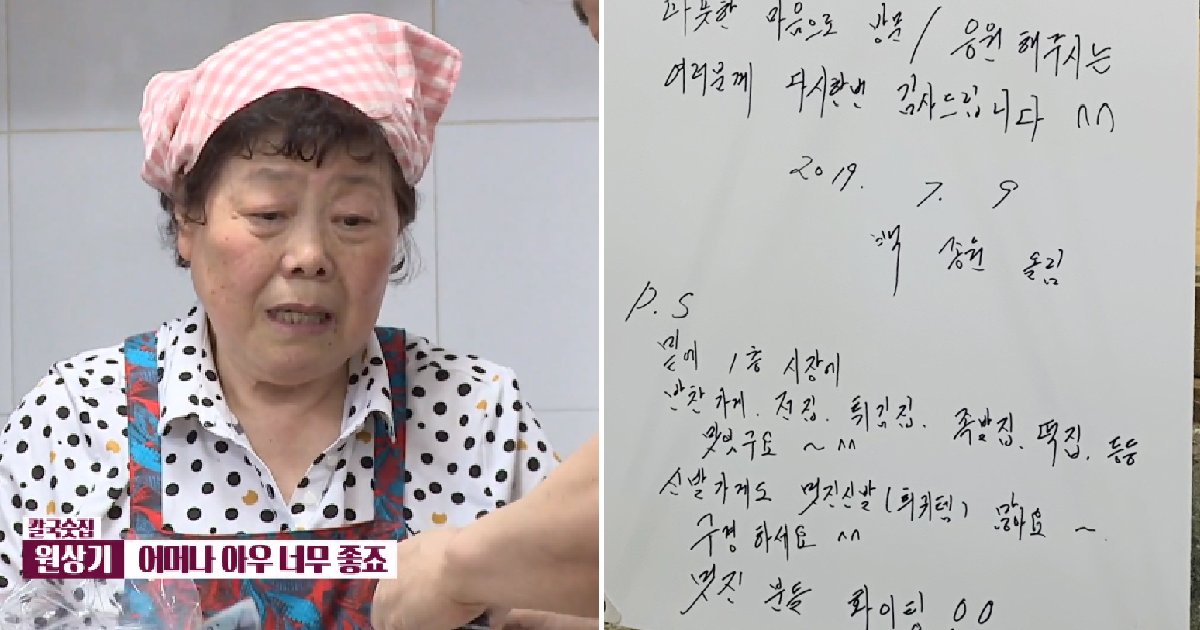 칼국숫집
원상기 어머나 아우 너무 좋죠
따뜻한 마음으로 방문/응원 해주시는
여러분께 다시한번 감사드립니다 ^^
2019. 7. 9
백종원 올림
P.S
밑에 1층 시장에
반찬가게. 전집. 튀김집. 족발집. 떡집. 등등
맛있구요 ~ ^^
신발가게도 멋진신발(튀귀템) 많아요 ~
구경하세요 ^^
멋진 분들 화이팅 00